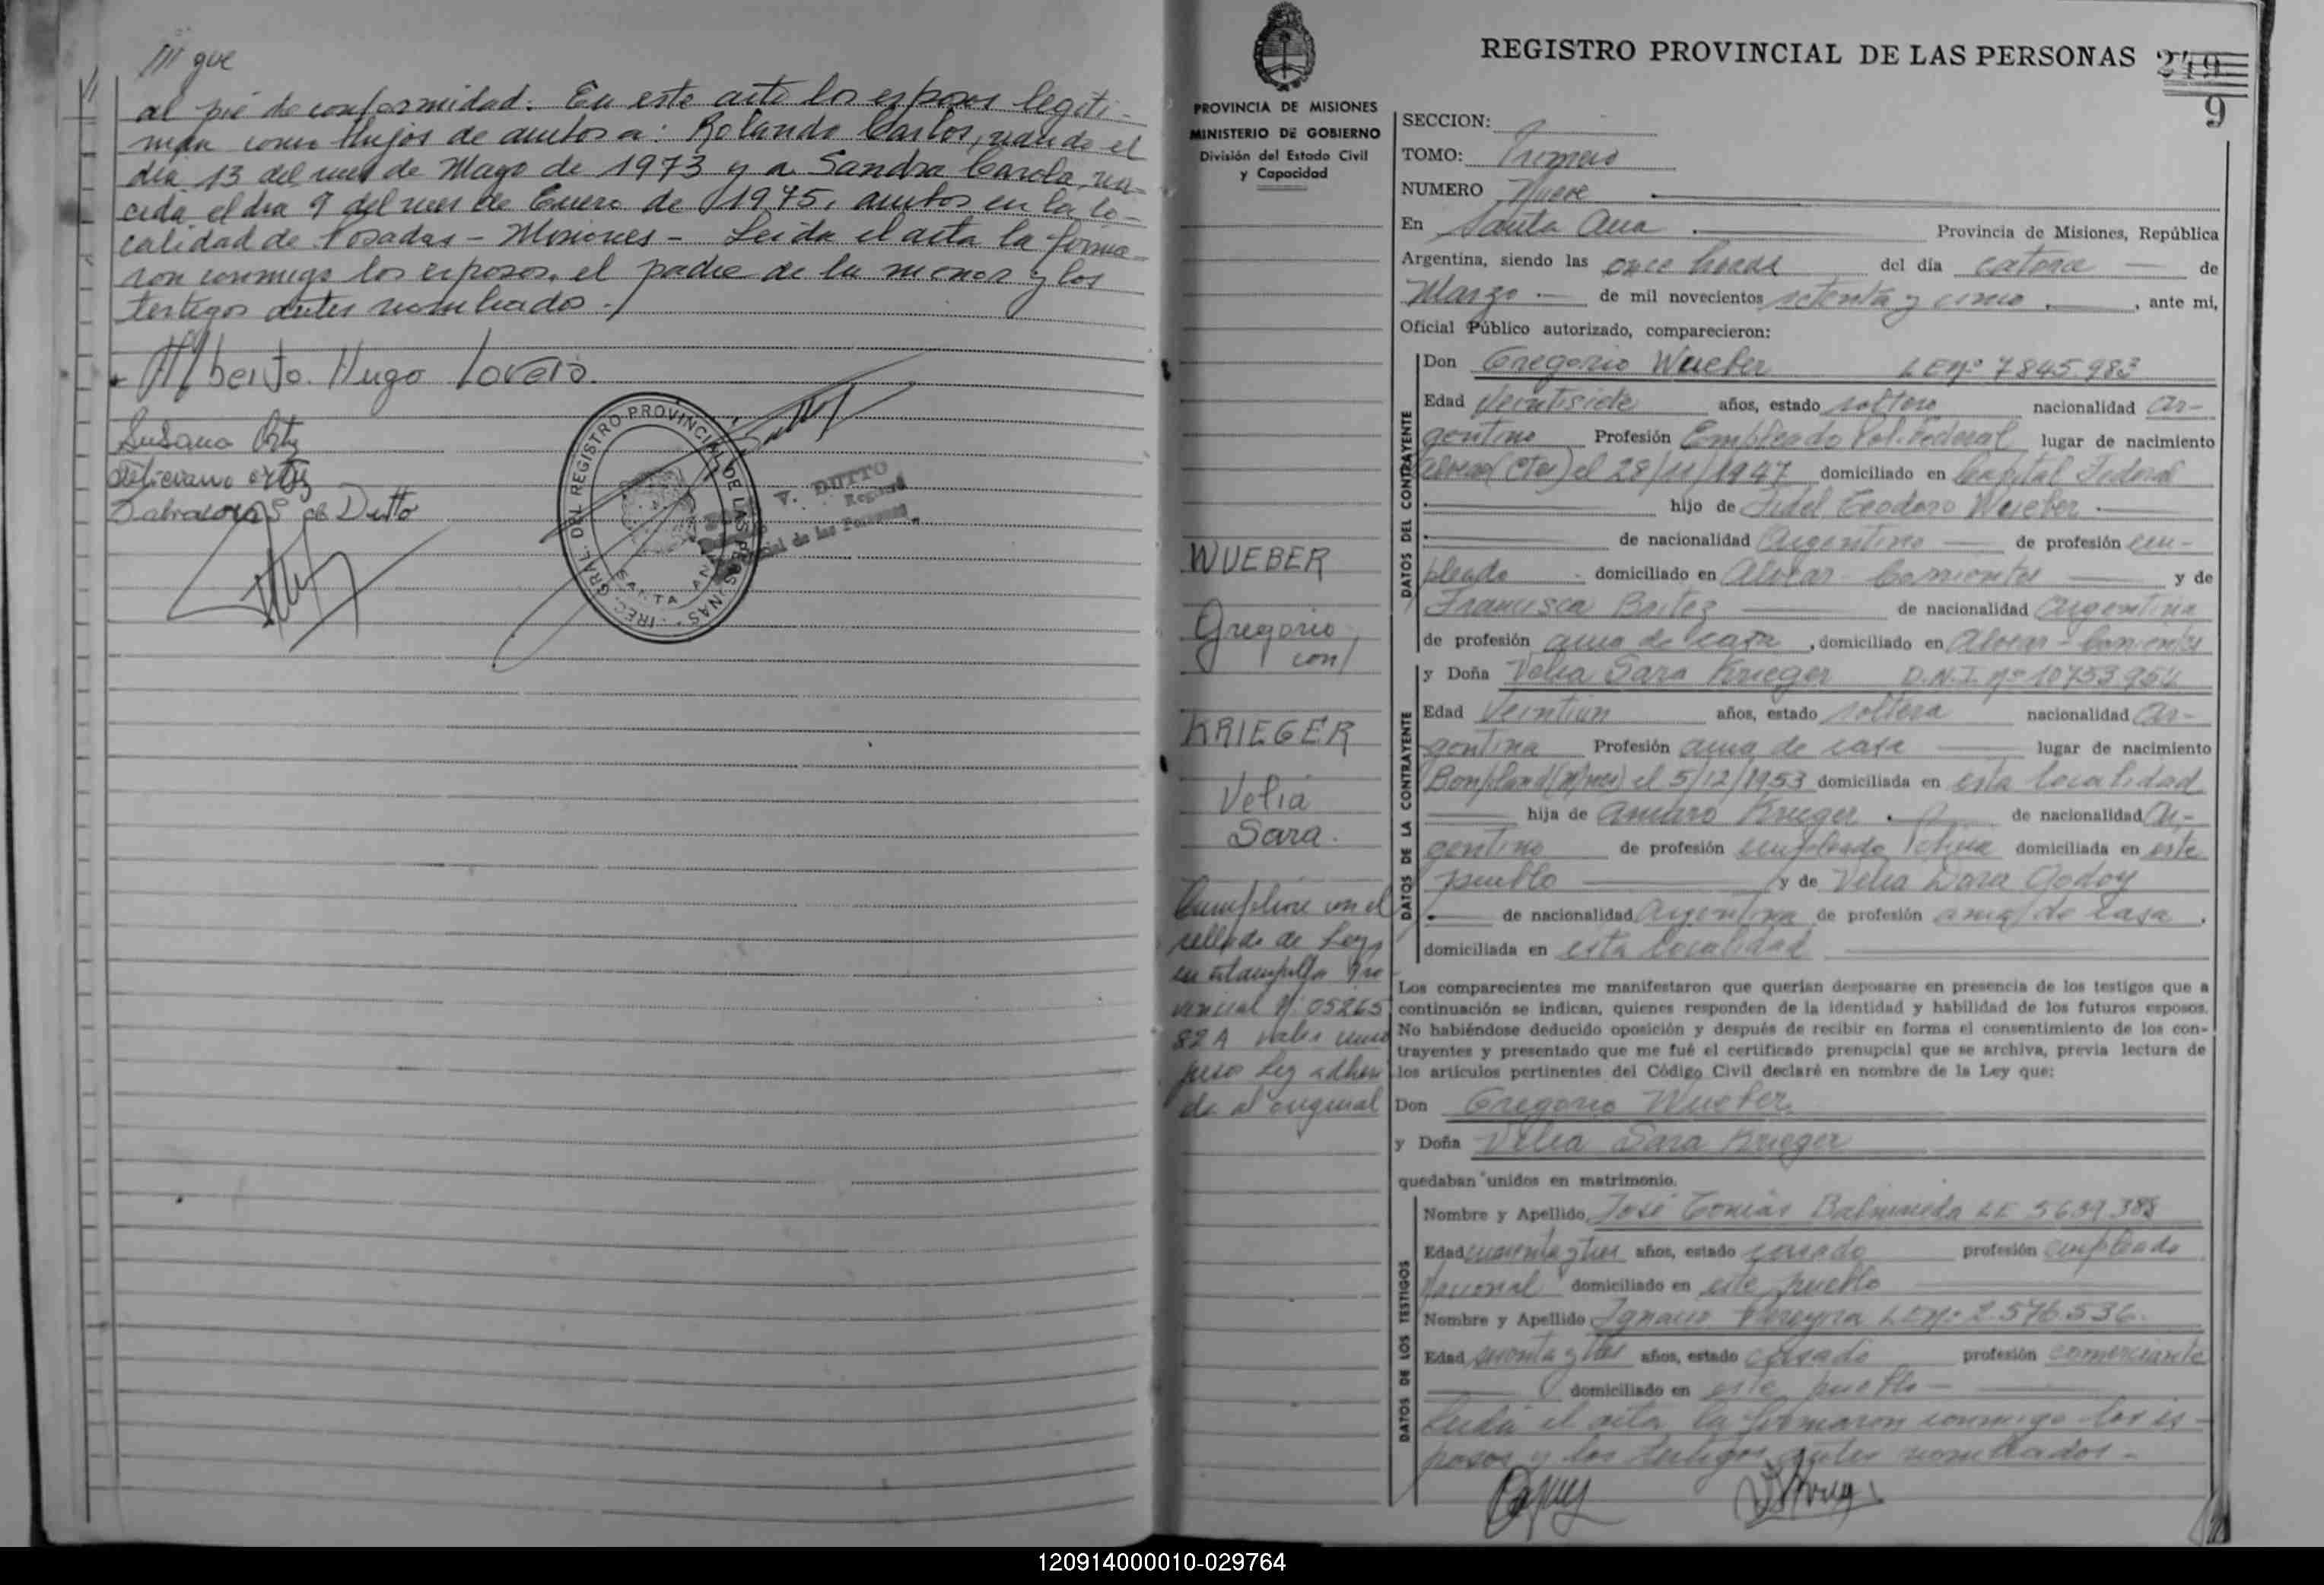 /// que
al pie de conformidad. En este acto los esposos legiti-
man como hijos de ambos a: Rolando Carlos, nacido el
dia 13 del mes de Mayo de 1973 y a Sandra Carola, na-
cida el dia 9 del mes de Enero de 1975, ambos en la lo-
calidad de Posadas - Misiones - Leida el acta la firma-
ron conmigo los esposos, el padre de la menor y los
testigos antes nombrado.-
Alberto Hugo
Susana Ortiz
Ortiz
de Dutto
DIREC. GRAL. DEL REGISTRO PROVINCIAL DE LAS PERSONAS
SANTA ANA
V. DUTTO
de las Personas
PROVINCIA DE MISIONES
MINISTERIO DE GOBIERNO
División del Estado Civil
y Capacidad
WUEBER
Gregorio
con/
KRIEGER
Velia
Sara.
Cumplióse con el
sellado de Ley
en estampilla Pro
vincial Nº 05265
82 A valor un
peso Ley adheri
da al original
REGISTRO PROVINCIAL DE LAS PERSONAS 249
9
SECCION:
TOMO: Primero
NUMERO Nueve
En Santa Ana Provincia de Misiones, República
Argentina, siendo las once horas del día catorce de
Marzo de mil novecientos setenta y cinco, ante mí,
Oficial Público autorizado, comparecieron:
DATOS DEL CONTRAYENTE
Don Gregorio Wueber L E nº 7845983
Edad Veintisiete años, estado soltero nacionalidad Ar-
gentino Profesión Empleado Pol. Federal lugar de nacimiento
Alvear (Ctes) el 28/11/1947 domiciliado en Capital Federal
hijo de Fidel Teodoro Wueber
de nacionalidad Argentino de profesión em-
pleado domiciliado en Alvear - Corrientes y de
Francisca Baitez de nacionalidad Argentina
de profesión ama de casa, domiciliado en Alvear - Corrientes
DATOS DE LA CONTRAYENTE
y Doña Velia Sara Krieger D.N.I. nº 10753954
Edad Veintiun años, estado soltera nacionalidad Ar-
gentina Profesión ama de casa lugar de nacimiento
Bompland (Mnes) el 5/12/1953 domiciliada en esta localidad
hija de Amaro Krieger de nacionalidad Ar-
gentino de profesión empleado domiciliada en este
pueblo y de Velia Dora Godoy
de nacionalidad Argentina de profesión ama de casa,
domiciliada en esta localidad
Los comparecientes me manifestaron que querían desposarse en presencia de los testigos que a
continuación se indican, quienes responden de la identidad y habilidad de los futuros esposos.
No habiéndose deducido oposición y después de recibir en forma el consentimiento de los con-
trayentes y presentado que me fué el certificado prenupcial que se archiva, previa lectura de
los artículos pertinentes del Código Civil declaré en nombre de la Ley que:
Don Gregorio Wueber
y Doña Velia Sara Krieger
quedaban unidos en matrimonio.
DATOS DE LOS TESTIGOS
Nombre y Apellido José Tomás Balmaceda LE 5639388
Edad cuarenta y tres años, estado casado profesión empleado
Nacional domiciliado en este pueblo
Nombre y Apellido Ignacio Pereyra L E nº 2.576.536.
Edad y tres años, estado casado profesión comerciante
domiciliado en este pueblo -
Leida el acta la firmaron conmigo los es-
posos y los testigos antes nombrados.-
120914000010-029764